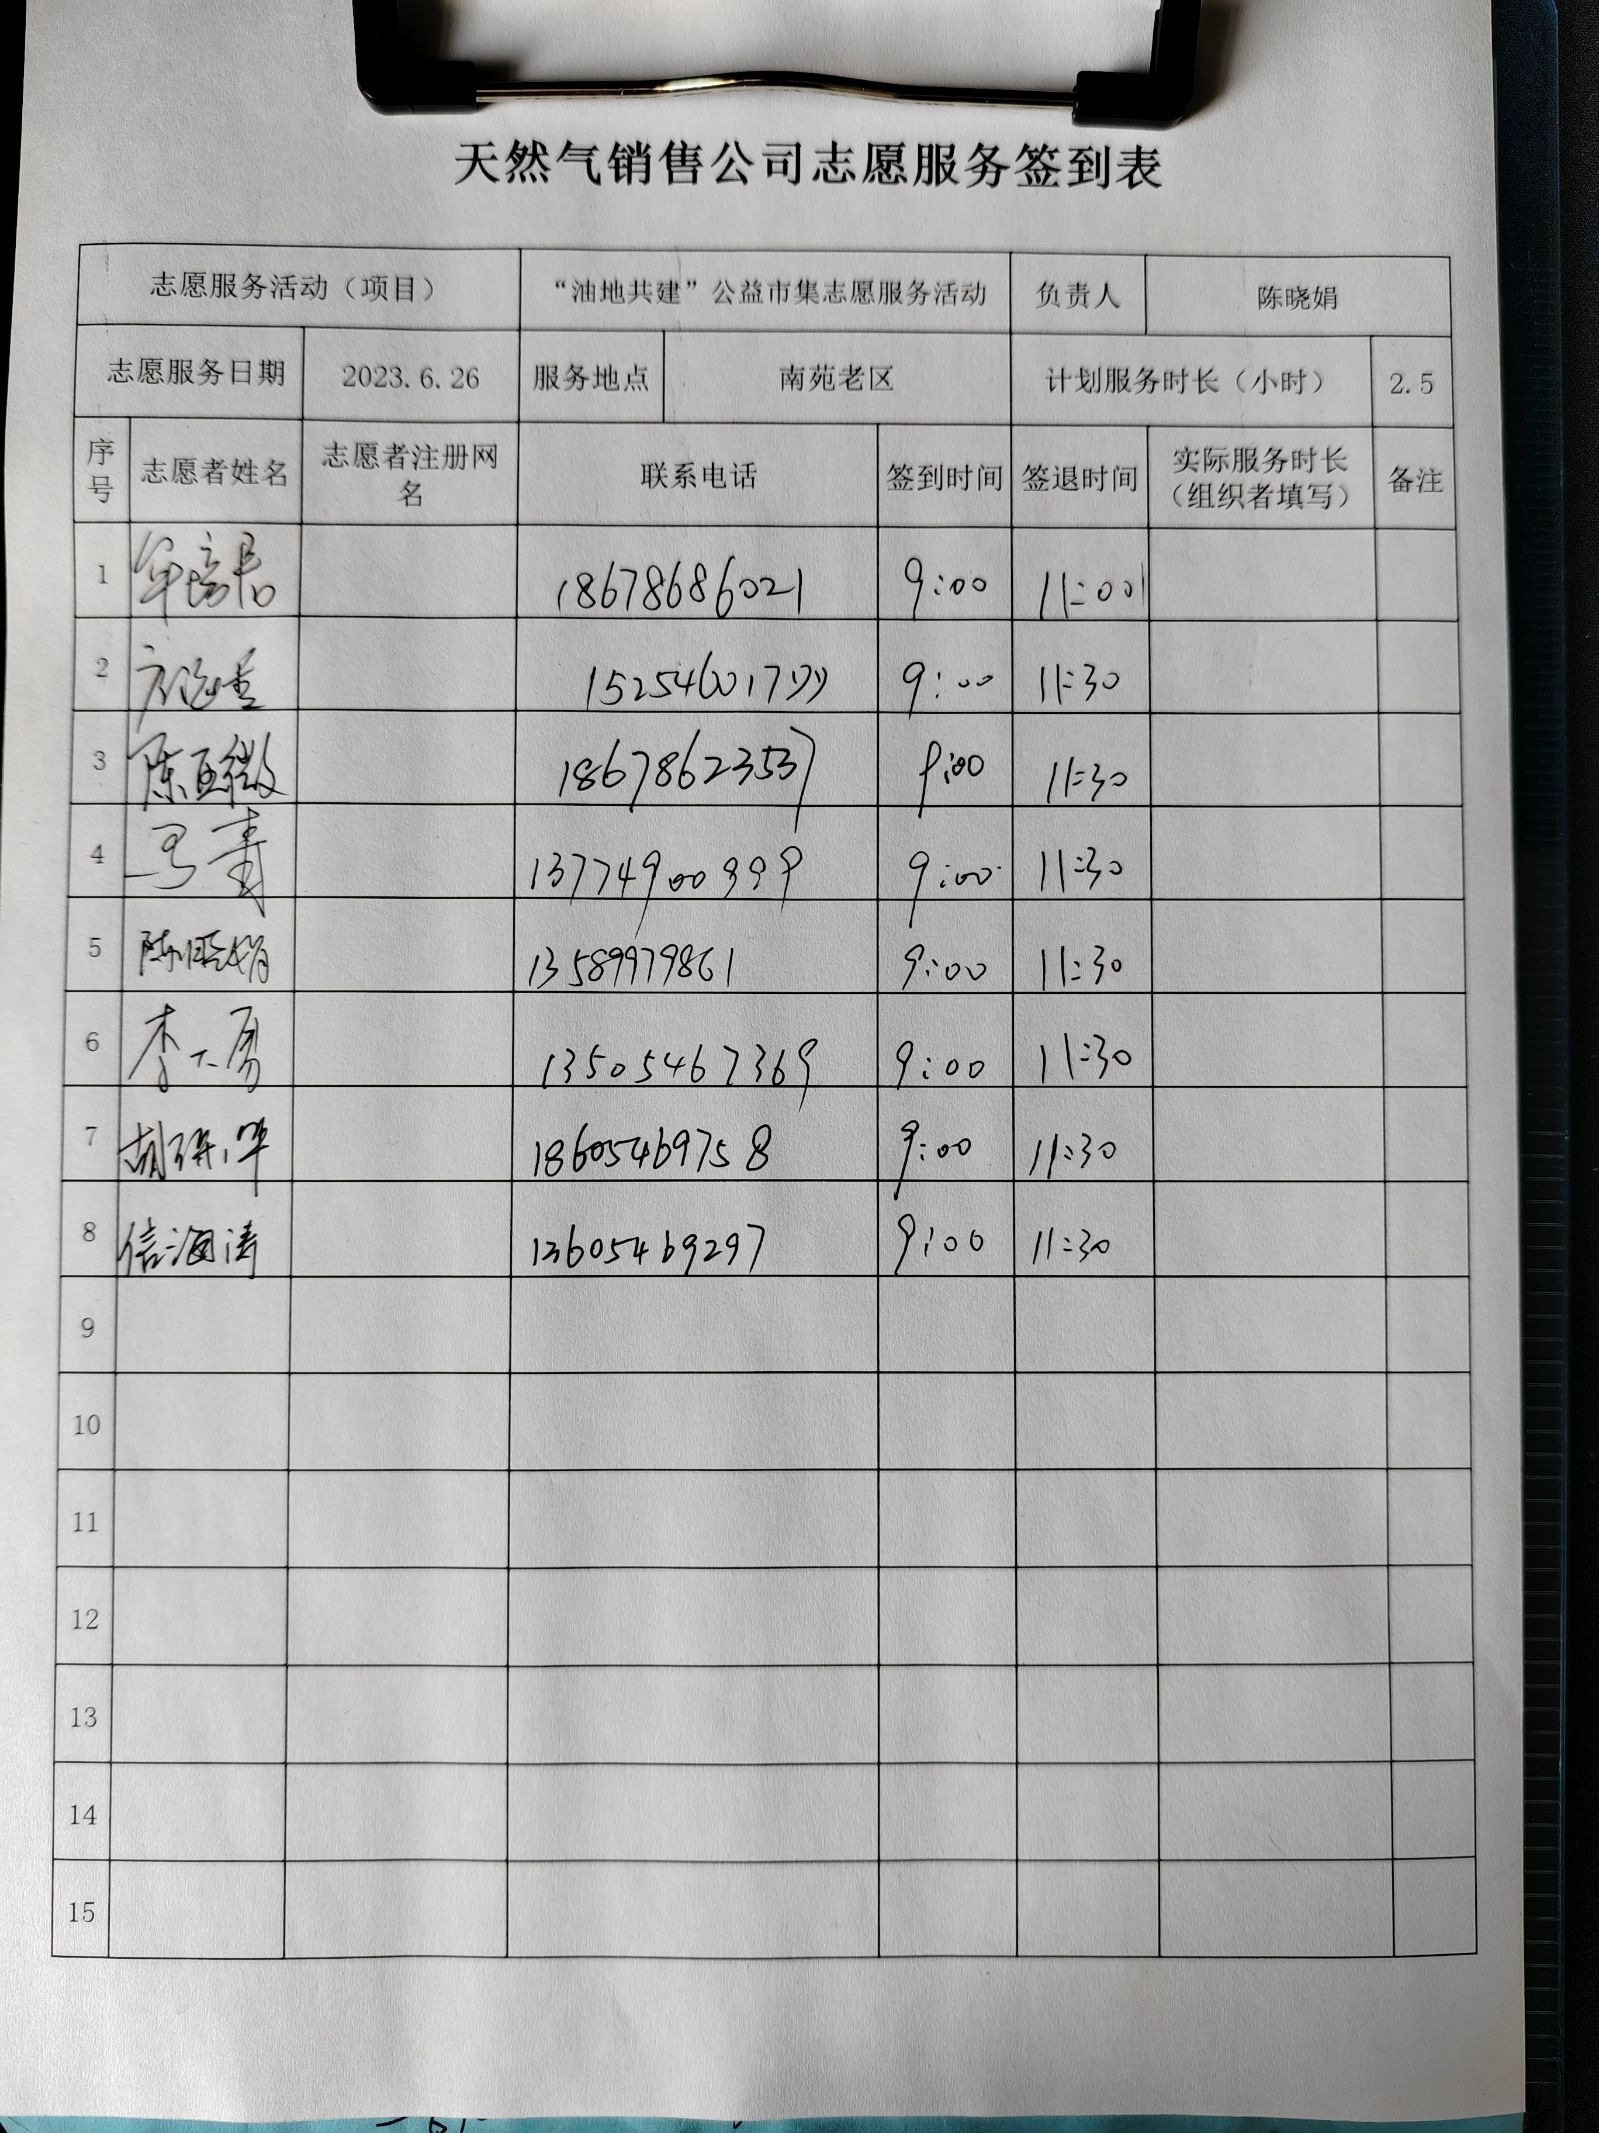 天然气销售公司志愿服务签到表
志愿服务活动（项目） “油地共建”公益市集志愿服务活动 负责人 陈晓娟
志愿服务日期 2023.6.26 服务地点 南苑老区 计划服务时长（小时） 2.5
序号 志愿者姓名 志愿者注册网名 联系电话 签到时间 签退时间 实际服务时长（组织者填写） 备注
1 18678686021 9:00 11:00
2 9:00 11:30
3 陈亚微 18678623537 9:00 11:30
4 马青 13774900999 9:00 11:30
5 陈晓娟 13589979861 9:00 11:30
6 李大勇 13505467369 9:00 11:30
7 18605469758 9:00 11:30
8 信海涛 13605469297 9:00 11:30
9
10
11
12
13
14
15